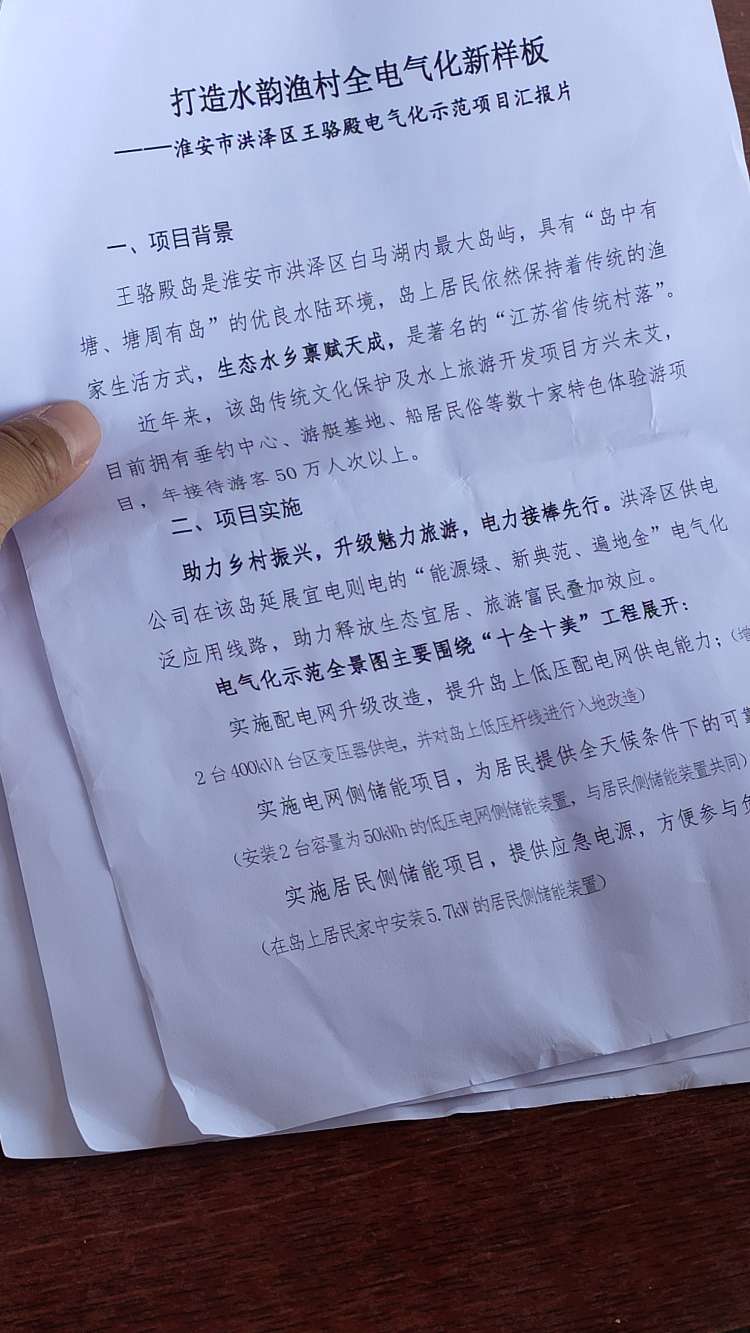 打造水韵渔村全电气化新样板
——淮安市洪泽区王骆殿电气化示范项目汇报片
一、项目背景
王骆殿岛是淮安市洪泽区白马湖内最大岛屿，具有“岛中有
塘、塘周有岛”的优良水陆环境，岛上居民依然保持着传统的渔
家生活方式，生态水乡禀赋天成，是著名的“江苏省传统村落”。
近年来，该岛传统文化保护及水上旅游开发项目方兴未艾，
目前拥有垂钓中心、游艇基地、船居民俗等数十家特色体验游项
目，年接待游客50万人次以上。
二、项目实施
助力乡村振兴，升级魅力旅游，电力接棒先行。洪泽区供电
公司在该岛延展宜电则电的“能源绿、新典范、遍地金”电气化
泛应用线路，助力释放生态宜居、旅游富民叠加效应。
电气化示范全景图主要围绕“十全十美”工程展开：
实施配电网升级改造，提升岛上低压配电网供电能力；（增
2台400kVA台区变压器供电，并对岛上低压杆线进行入地改造）
实施电网侧储能项目，为居民提供全天候条件下的可靠
（安装2台容量为50kWh的低压电网侧储能装置，与居民侧储能装置共同）
实施居民侧储能项目，提供应急电源，方便参与负
（在岛上居民家中安装5.7kW的居民侧储能装置）